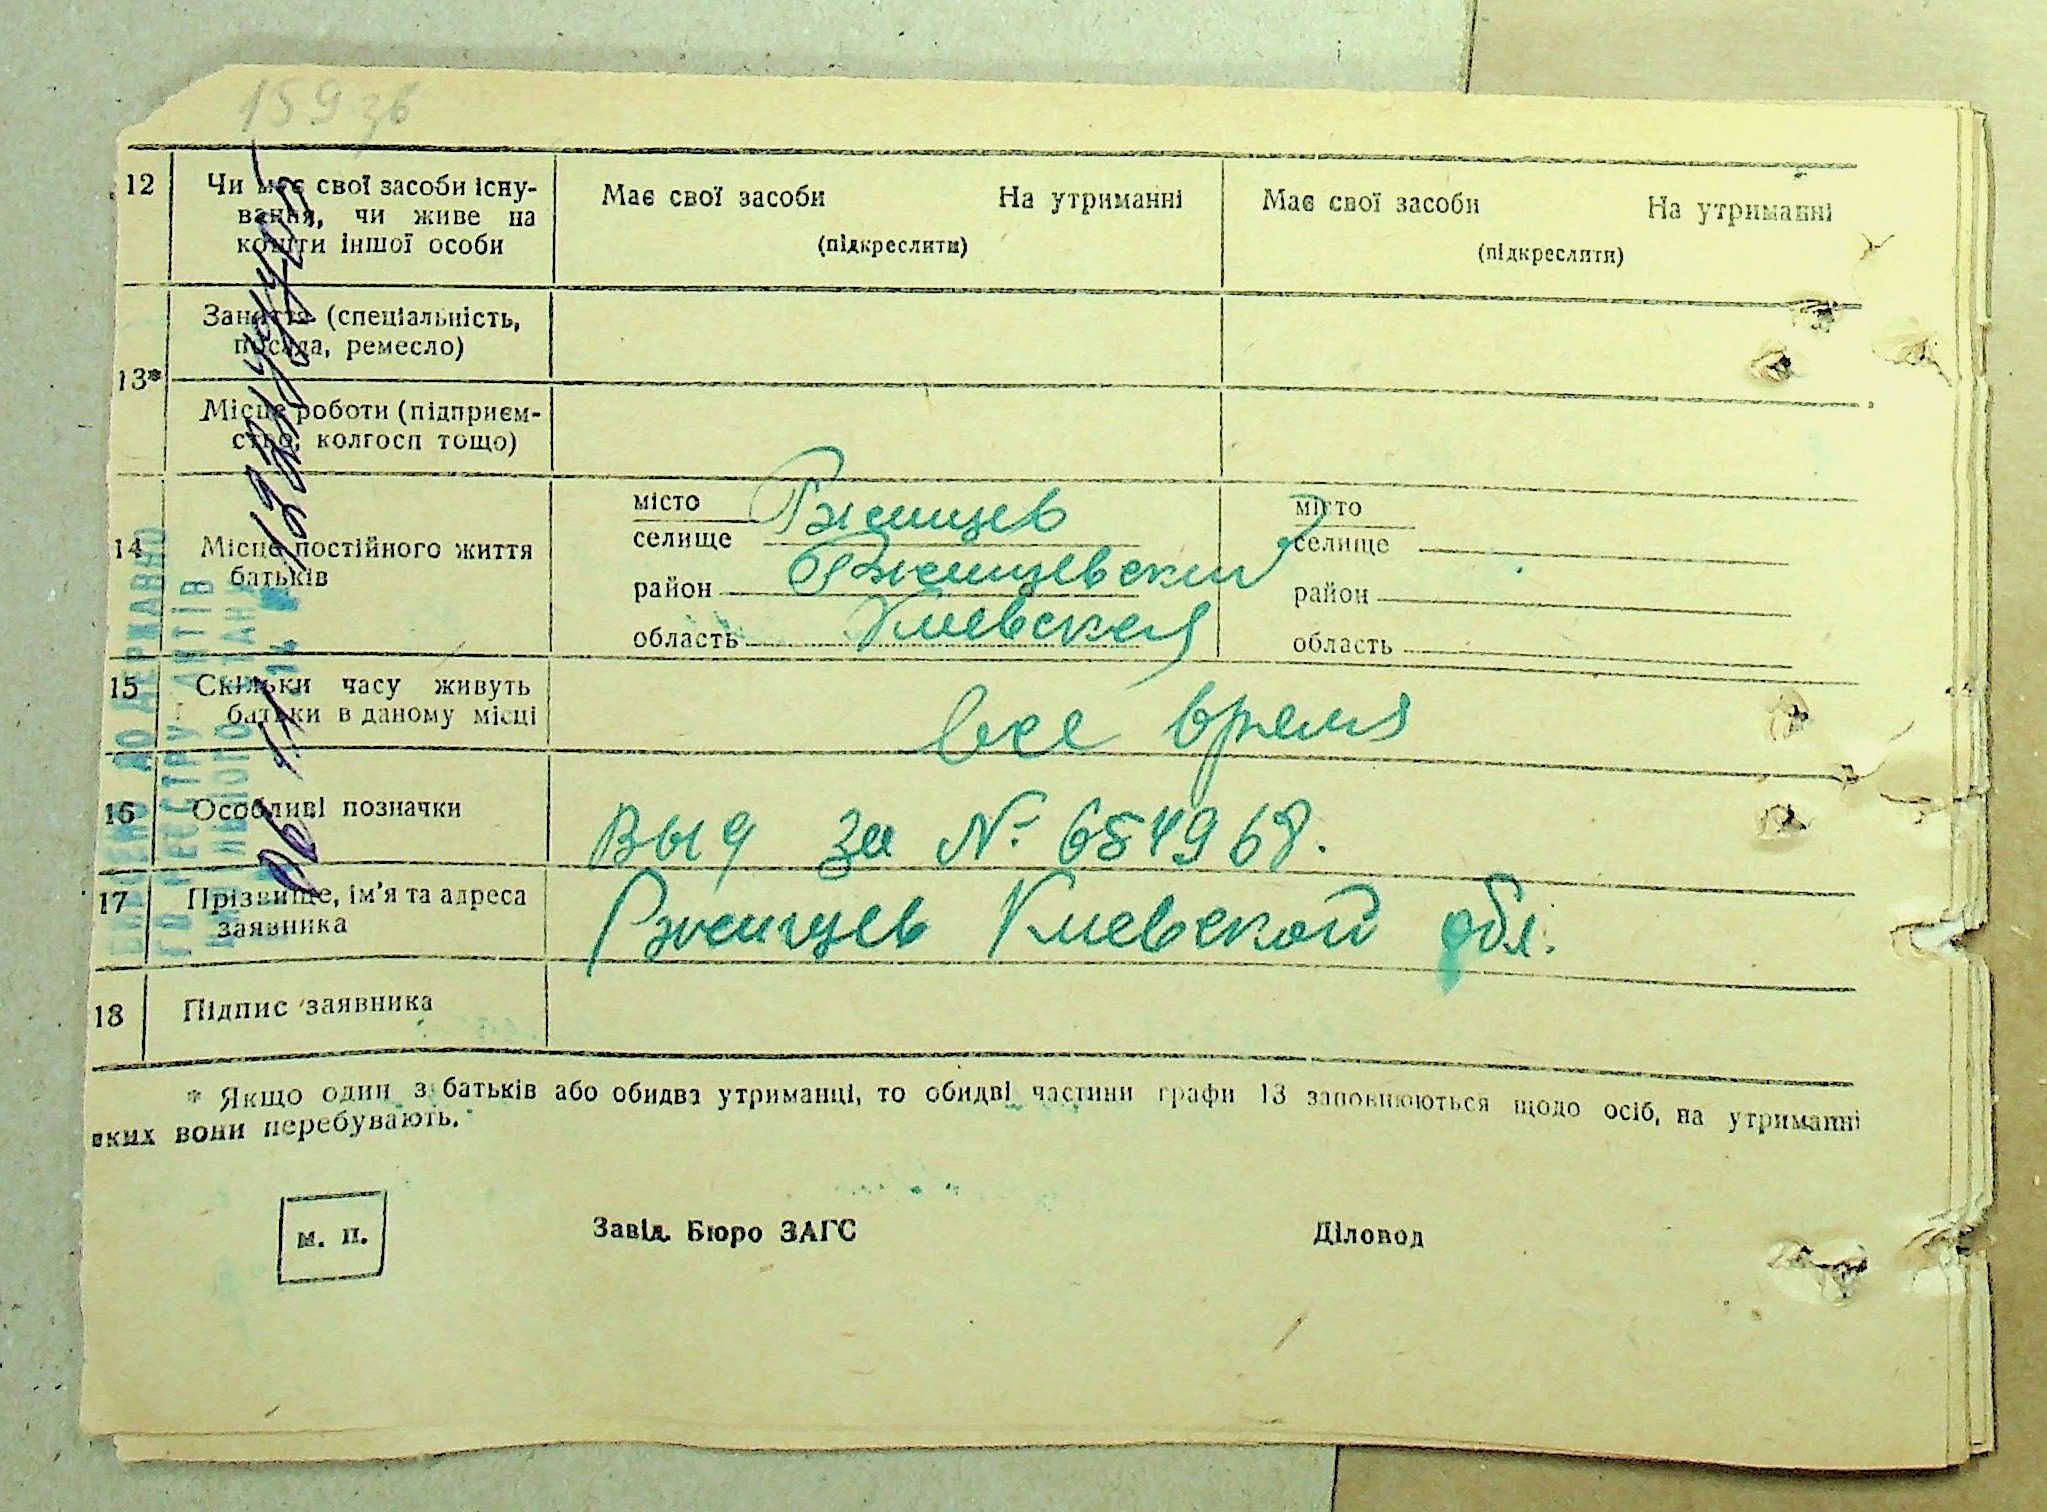 159 зв
12 Чи має свої засоби існу-
вання, чи живе на
кошти іншої особи
Має свої засоби На утриманні
(підкреслити)
Має свої засоби На утриманні
(підкреслити)
13*
Заняття (спеціальність,
посада, ремесло)
Місце роботи (підприєм-
ство, колгосп тощо)
14 Місце постійного життя
батьків
місто Ржищев
селище
район Ржищевский
область Киевская
місто
селище
район
область
15 Скільки часу живуть
батьки в даному місці
все время
16 Особливі позначки
выд за №
17 Прізвище, ім'я та адреса
заявника
Ржищев Киевской обл.
18 Підпис заявника
* Якщо один з батьків або обидва утриманці, то обидві частини графи 13 заповнюються щодо осіб, на утриманні
яких вони перебувають.
м. п.
Завід. Бюро ЗАГС
Діловод